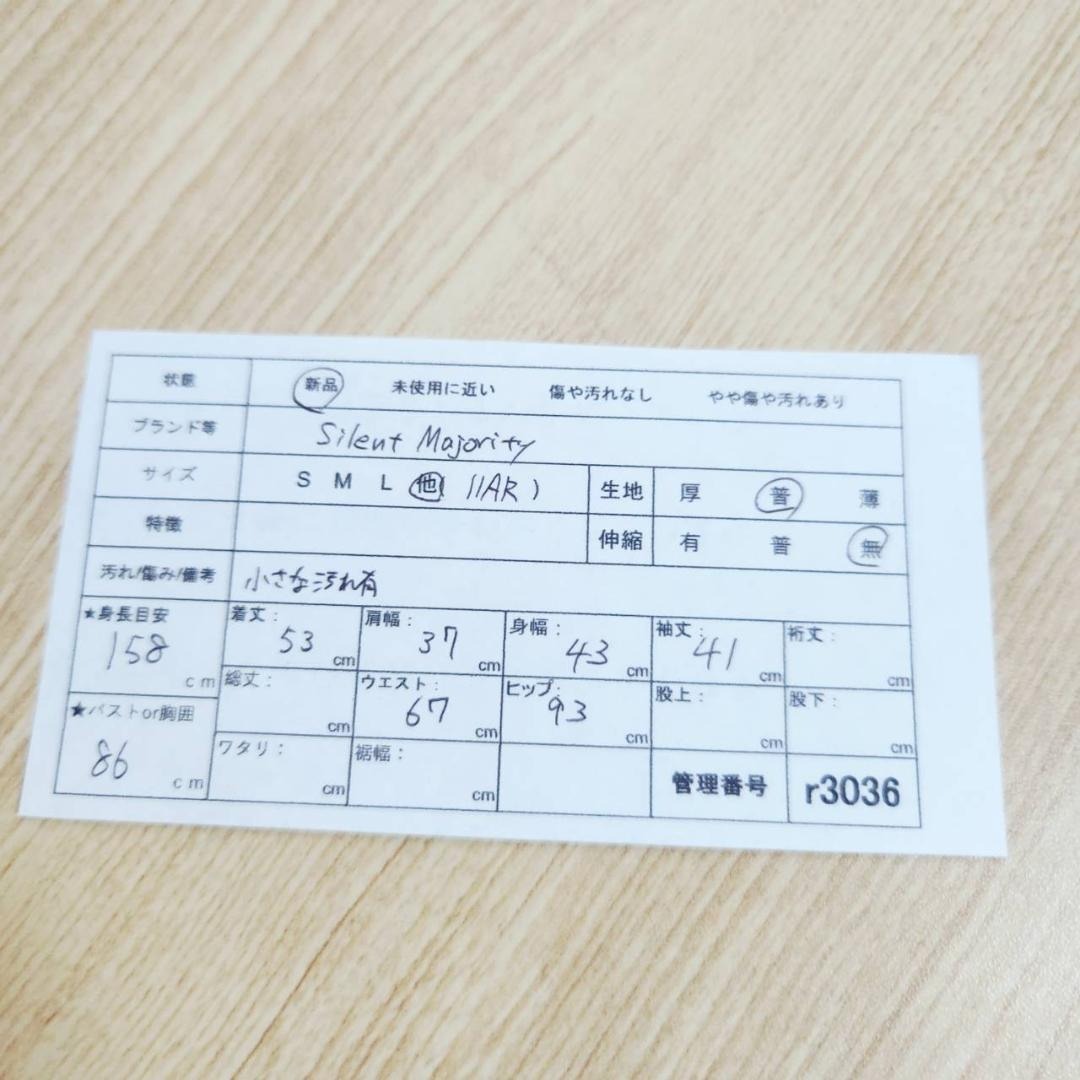 状態 新品 未使用に近い 傷や汚れなし やや傷や汚れあり
ブランド等 Silent Majority
サイズ S M L 他(11AR) 生地 厚 普 薄
特徴 伸縮 有 普 無
汚れ/傷み/備考 小さな汚れ有
★身長目安 158 cm 着丈: 53 cm 肩幅: 37 cm 身幅: 43 cm 袖丈: 41 cm 裄丈: cm
総丈: cm ウエスト: 67 cm ヒップ: 93 cm 股上: cm 股下: cm
★バストor胸囲 86 cm ワタリ: cm 裾幅: cm 管理番号 r3036